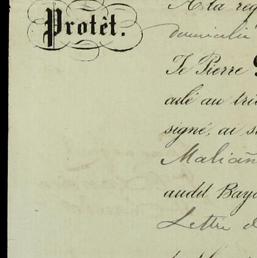 Protêt.
A la req
domicilié
Je Pierre
culé au tri
signé, ai s
Malian
audit Bayo
Lettre d